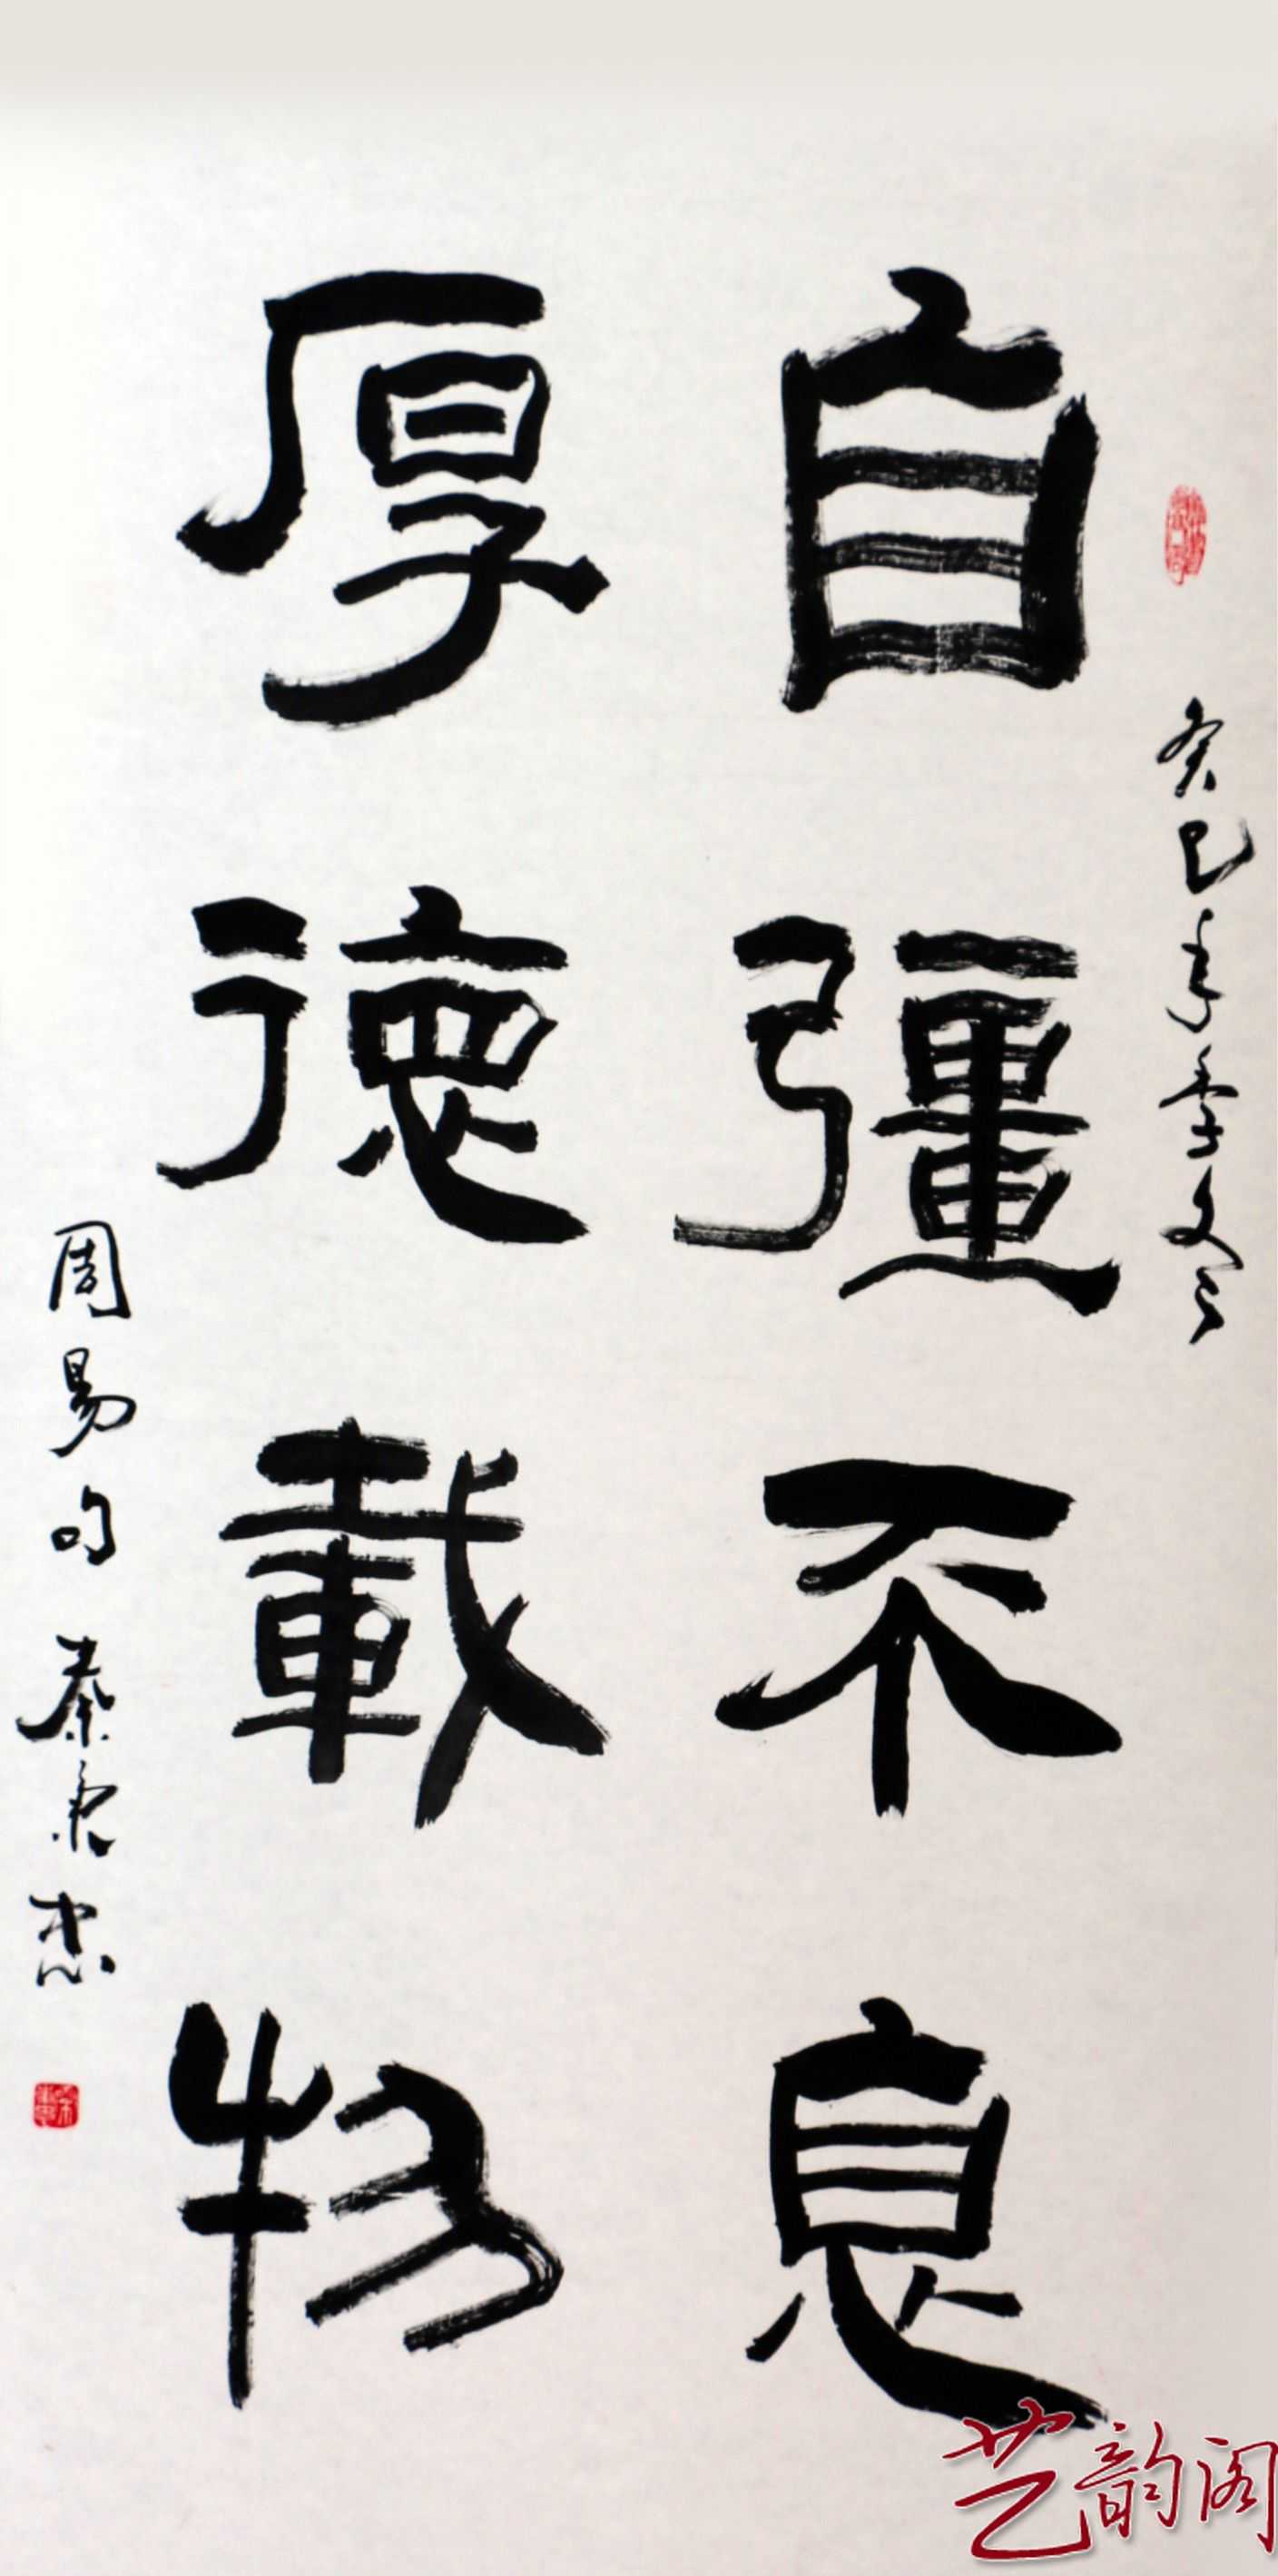 癸巳年季夏之
自彊不息
厚德載物
周易句 秦秉忠
艺韵阁